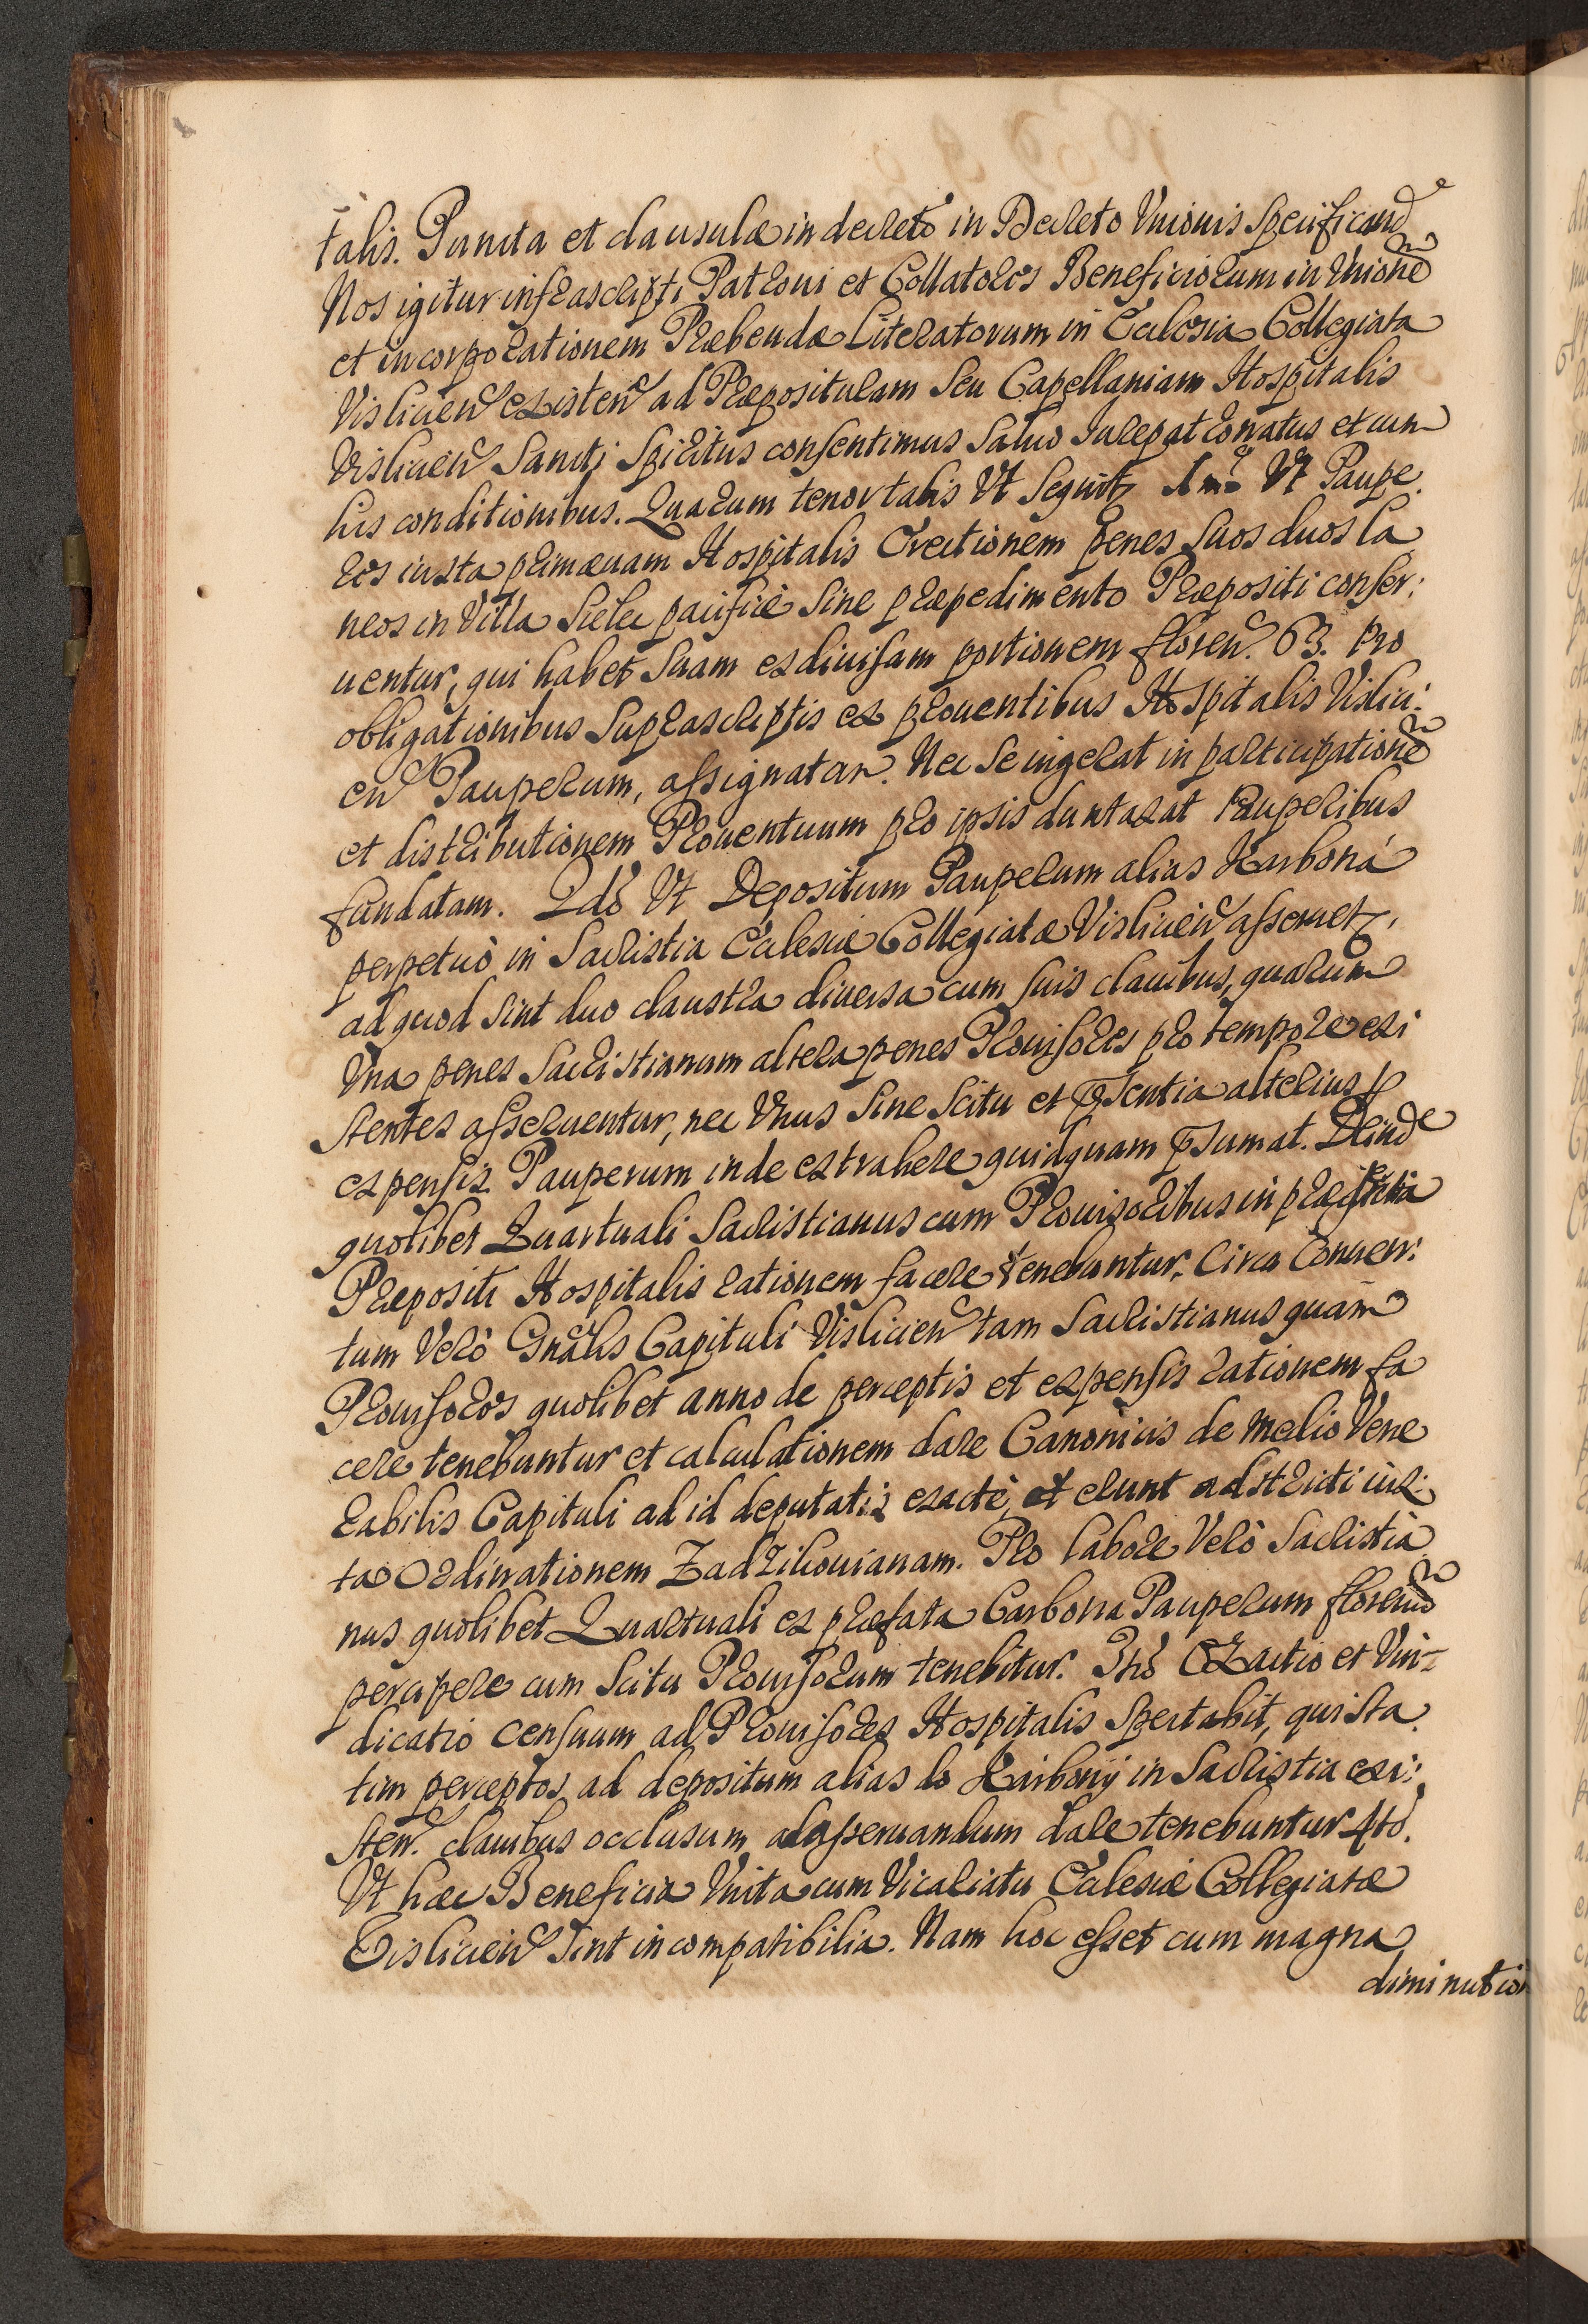 talis. Puncta et clausulæ in decreto in Decreto Vnionis specificand
Nos igitur infrascripti Patroni et Collatores Beneficiorum in Vnionē
et incorporationem Præbendæ Literatorum in Ecclesia Collegiata
Vislicien existen ad Præposituram seu Capellaniam Hospitalis
Vislicien Sancti Spiritus consentimus Saluo Iurepatronatus et cum
his conditionibus. Quarum tenor talis Vt Sequit Imo Vt Paupe
res iuxta primæuam Hospitalis Erectionem penes Suos duos La
neos in Villa Sielec pacificè Sine præpedimento Præpositi conser:
uentur, qui habet Suam ex diuisam portionem floren. 63. Pro
obligationibus Suprascriptis ex prouentibus Hospitalis Vislici:
en Pauperum, assignatam. Nec Se ingerat in participationē
et distributionem Prouentuum pro ipsis duntaxat Pauperibus
fundatam. 2dò Vt Depositum Pauperum alias Karboná
perpetuò in Sacristia Ecclesiæ Collegiatæ Vislicien asseruet,
ad quod Sint duo claustra diuersa cum Suis clauibus, quarum
Vna penes Sacristianum altera penes Prouisores pro tempore exi
stentes asseruentur, nec Vnus Sine Scitu et pñsentia alterius p
expensis Pauperum inde extrahere quidquam pñsumat. Deinde
quolibet Quartuali Sacristianus cum Prouisoribus in præsentia
Præpositi Hospitalis rationem facere tenebuntur. Circa Conuen:
tum Verò Gnãlis Capituli Vislicien tam Sacristianus quam
Prouisores quolibet anno de perceptis et expensis rationem fa
cere tenebuntur et calculationem dare Canonicis de medio Vene
rabilis Capituli ad id deputatis exactè, et erunt adstricti iux:
ta Ordinationem Zadzikouianam. Pro labore Verò Sacristia
nus quolibet Quartuali ex præfata Carbona Pauperum florenū
percipere cum Scitu Prouisorum tenebitur. 3tiò Exactio et Vin-
dicatio censuum ad Prouisores Hospitalis Spectabit, qui Sta
tim perceptos ad depositum alias do Karbony in Sacristia exi:
sten. clauibus occlusum adasseruandum dare tenebuntur 4tò.
Vt hæc Beneficia Vnita cum Vicariatu Ecclesiæ Collegiatæ
Vislicien Sint incompatibilia. Nam hoc esset cum magna
diminution